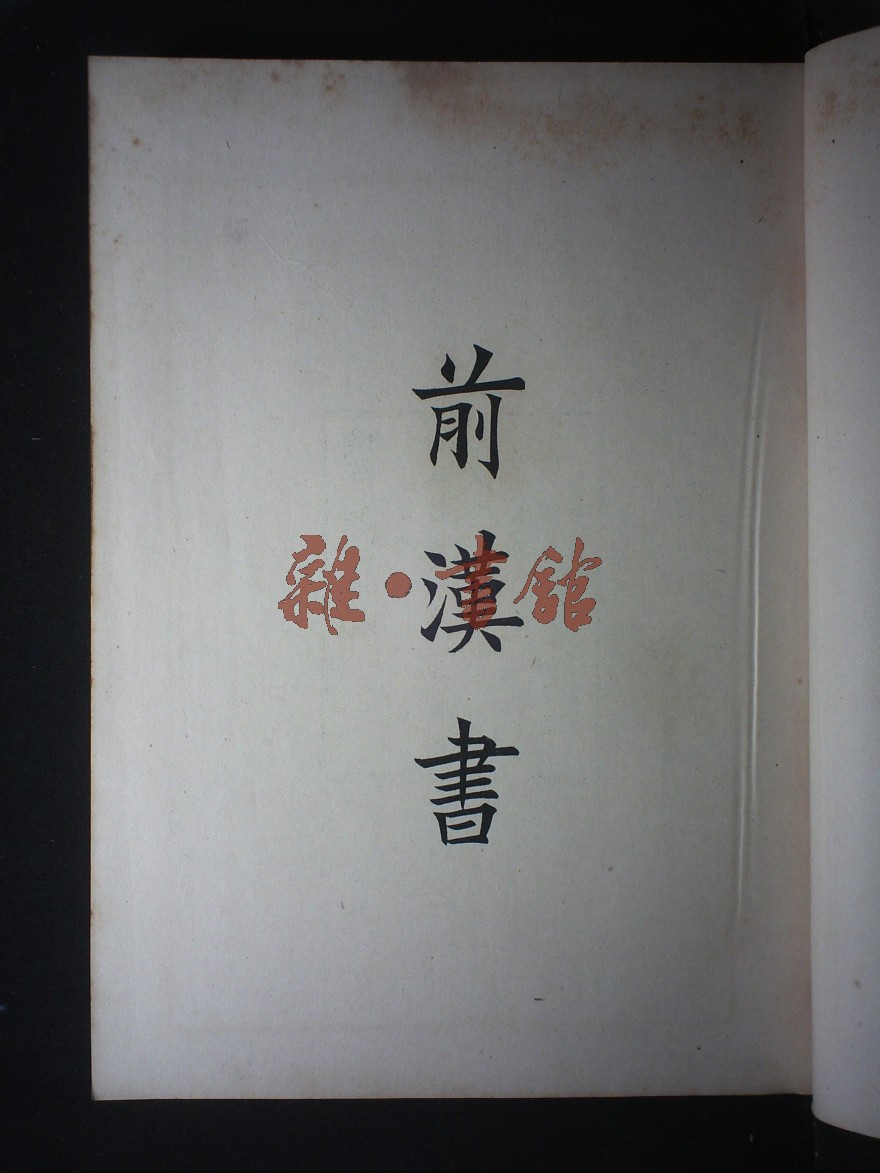 前漢書
雜·書館